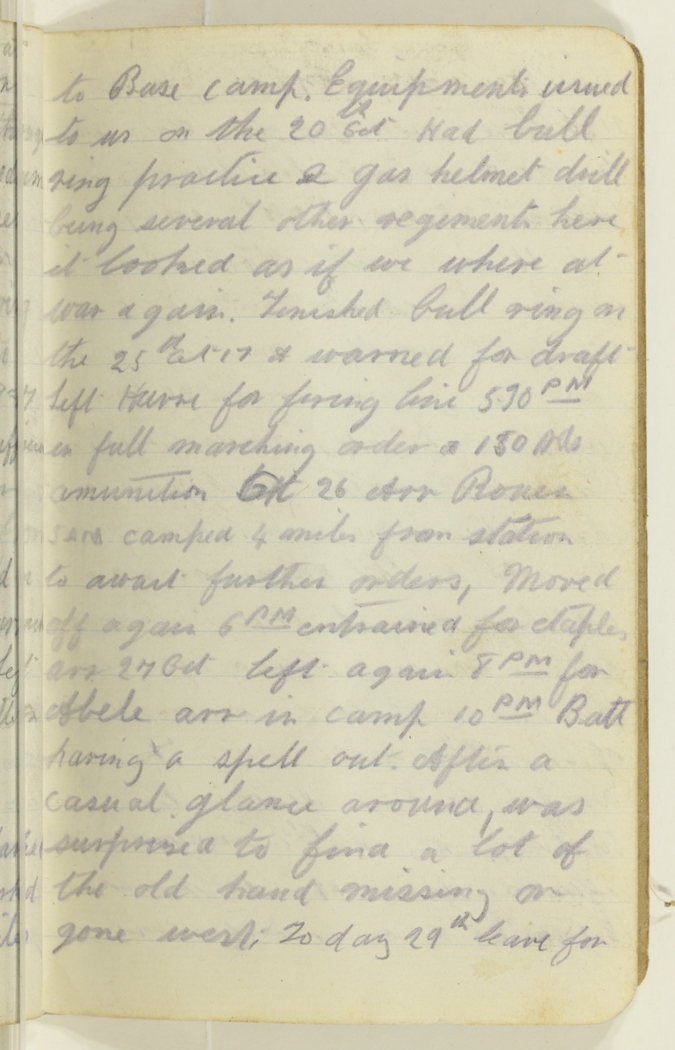 to Base camp. Equipments issued
to us on the 20th Oct Had bull
ring practice & gas helmet drill
being several other regiments here
it looked as if we where at
war again. Finished bull ring on
the 25th Oct 17 & warned for draft
Left Havre for firing line 5.30 PM
in full marching order & 150 Rds
amunition Oct 26 Arr Rouen
5 AM camped 4 miles from station
to await further orders, Moved
off again 6 PM entrained for Etaples
arr 27 Oct left again 8 PM for
Abele arr in camp 10 PM Batt
having a spell out. After a
casual glance around, was
surprised to find a lot of
the old hand missing or
gone west; To day 29th leave for